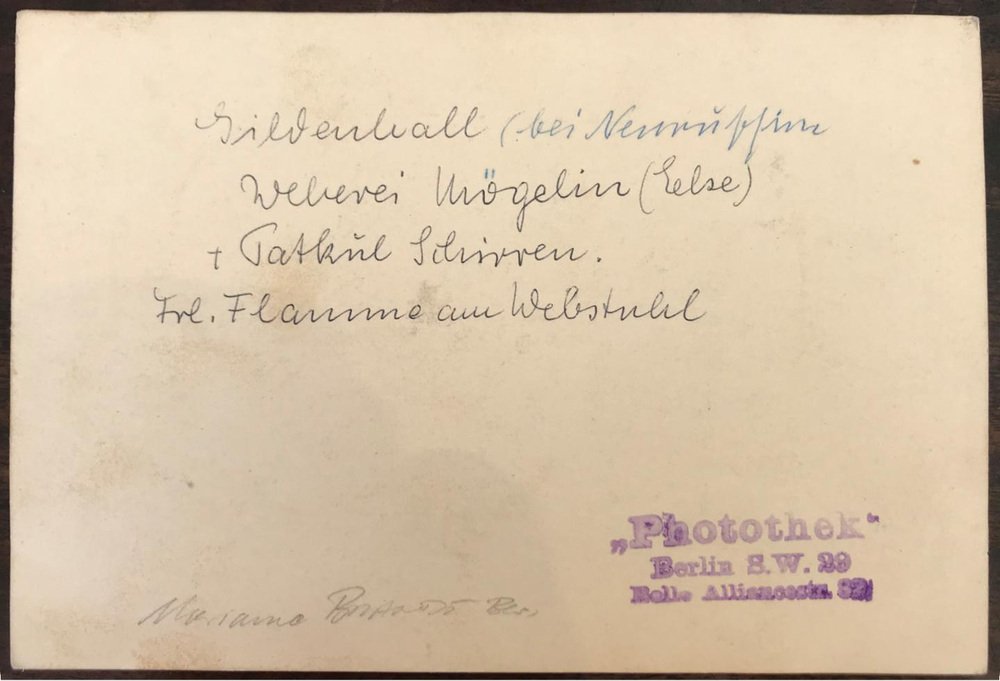 Gildenhall (bei Neuruppin
Weberei Mögelin (Else)
+ Tatkül Schirren.
Frl. Flamme am Webstuhl
„Photothek“
Berlin S.W. 29
Belle Alliancestr.
Marianne